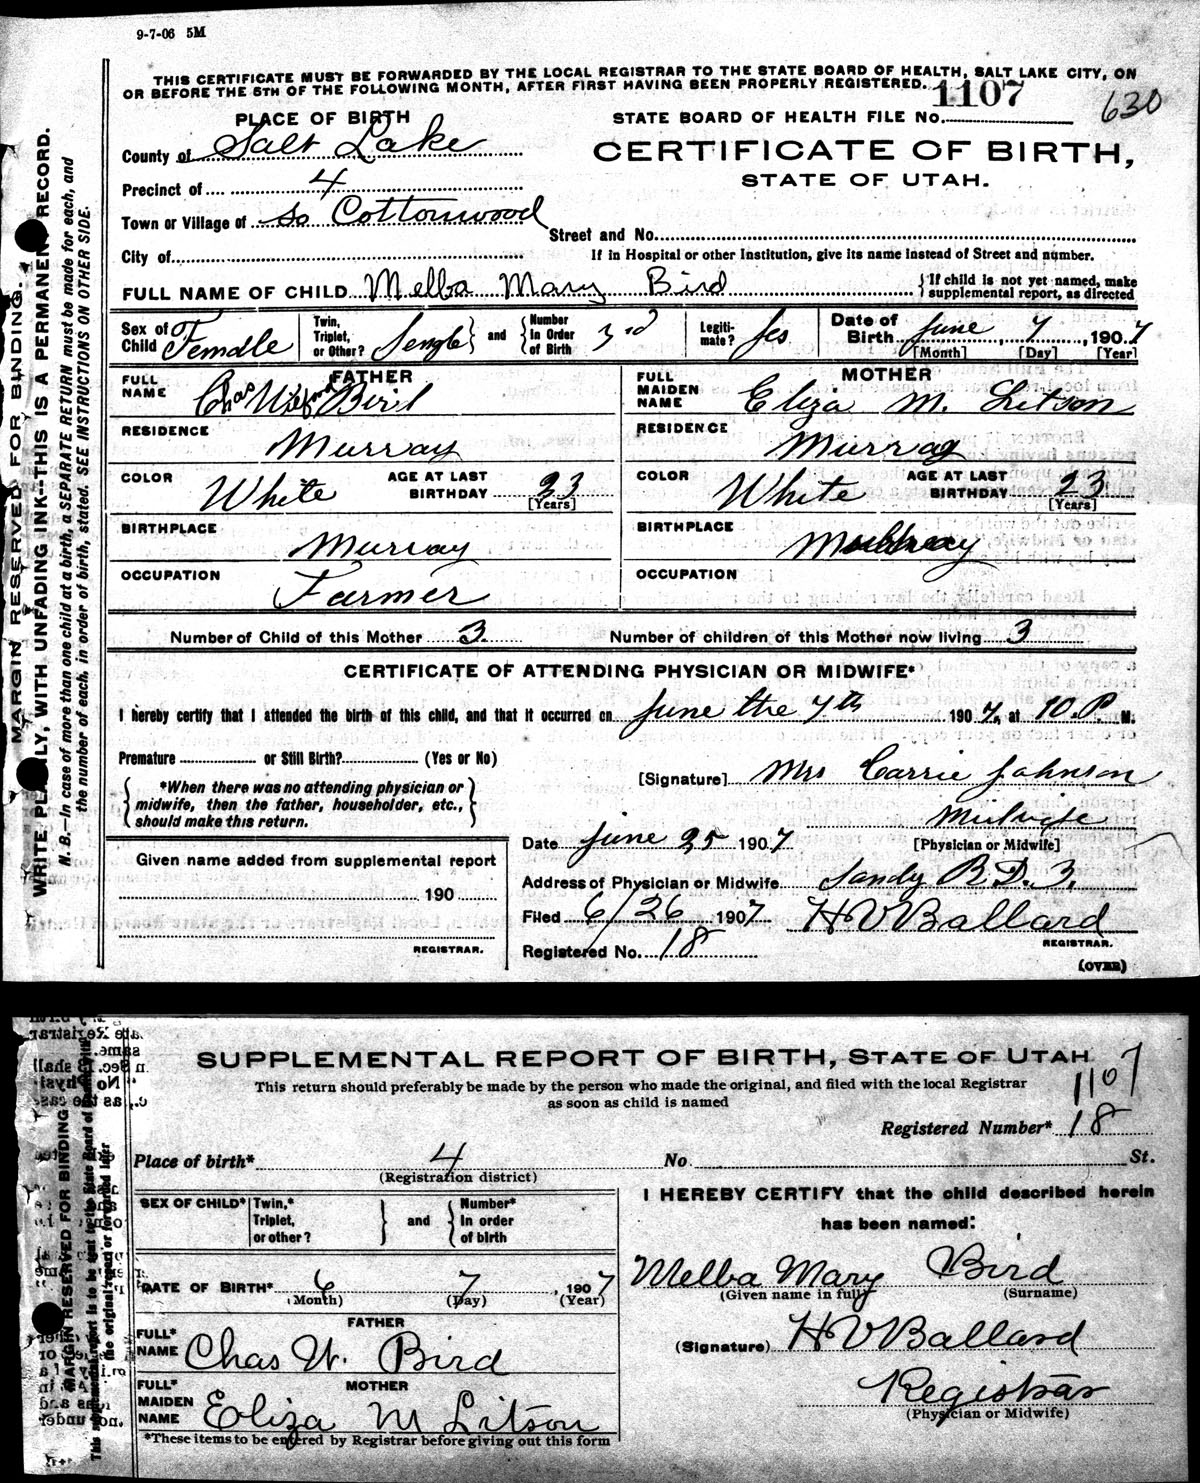 9-7-06 5M
THIS CERTIFICATE MUST BE FORWARDED BY THE LOCAL REGISTRAR TO THE STATE BOARD OF HEALTH, SALT LAKE CITY, ON
OR BEFORE THE 5TH OF THE FOLLOWING MONTH, AFTER FIRST HAVING BEEN PROPERLY REGISTERED.
1107
630
PLACE OF BIRTH
STATE BOARD OF HEALTH FILE No.
County of Salt Lake
CERTIFICATE OF BIRTH,
STATE OF UTAH.
Precinct of 4
Town or Village of So Cottonwood
Street and No.
City of
If in Hospital or other Institution, give its name instead of Street and number.
FULL NAME OF CHILD Melba Mary Bird
If child is not yet named, make
supplemental report, as directed
Sex of Child Female
Twin, Triplet, or Other? Single
and
Number In Order of Birth 3rd
Legitimate? Yes
Date of Birth June 7, 1907
[Month] [Day] [Year]
FATHER
FULL NAME Chas Wilford Bird
MOTHER
FULL MAIDEN NAME Eliza M. Litson
RESIDENCE Murray
RESIDENCE Murray
COLOR White AGE AT LAST BIRTHDAY 23 [Years]
COLOR White AGE AT LAST BIRTHDAY 23 [Years]
BIRTHPLACE Murray
BIRTHPLACE
OCCUPATION Farmer
OCCUPATION
Number of Child of this Mother 3.
Number of children of this Mother now living 3
CERTIFICATE OF ATTENDING PHYSICIAN OR MIDWIFE*
I hereby certify that I attended the birth of this child, and that it occurred on June the 7th 1907, at 10.P M.
Premature or Still Birth? (Yes or No)
[Signature] Mrs Carrie Johnson
*When there was no attending physician or
midwife, then the father, householder, etc.,
should make this return.
Midwife
[Physician or Midwife]
Date June 25 1907
Given name added from supplemental report
Address of Physician or Midwife. Sandy R.D. 3.
190
Filed 6/26 1907 H V Ballard
REGISTRAR.
REGISTRAR.
Registered No. 18
(OVER)
MARGIN RESERVED FOR BINDING.
WRITE PLAINLY, WITH UNFADING INK--THIS IS A PERMANENT RECORD.
N. B.—In case of more than one child at a birth, a SEPARATE RETURN must be made for each, and
the number of each, in order of birth, stated. SEE INSTRUCTIONS ON OTHER SIDE.
SUPPLEMENTAL REPORT OF BIRTH, STATE OF UTAH
1107
This return should preferably be made by the person who made the original, and filed with the local Registrar
as soon as child is named
Registered Number* 18
Place of birth* 4 No. St.
(Registration district)
SEX OF CHILD*
Twin,* Triplet, or other?
and
Number* In order of birth
I HEREBY CERTIFY that the child described herein
has been named:
Melba Mary Bird
(Given name in full) (Surname)
DATE OF BIRTH* 6 7, 1907
(Month) (Day) (Year)
FATHER
FULL* NAME Chas W. Bird
(Signature) H V Ballard
Registrar
(Physician or Midwife)
MOTHER
FULL* MAIDEN NAME Eliza M Litson
*These items to be entered by Registrar before giving out this form
MARGIN RESERVED FOR BINDING